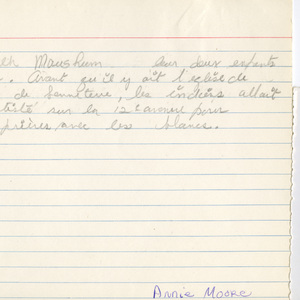 Mausham deux enfants
. Avant qu'il y ait l'église de
de Senneterre, les indiens allait
sur la 12e avenue pour
prières avec les blancs.
Annie Moore